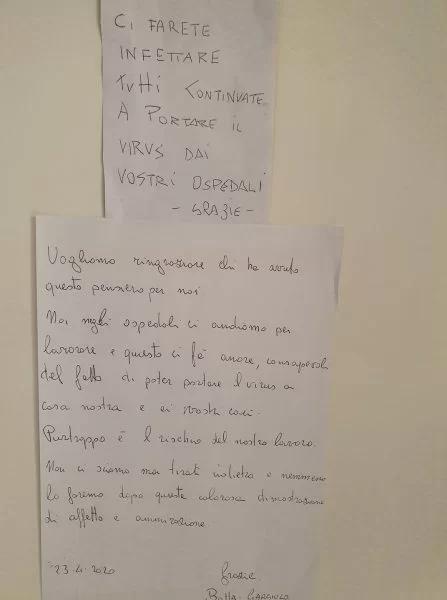 CI FARETE
INFETTARE
TUTTI CONTINUATE
A PORTARE IL
VIRUS DAI
VOSTRI OSPEDALI
- GRAZIE -
Vogliamo ringraziare chi ha avuto
questo pensiero per noi
Noi negli ospedali ci andiamo per
lavorare e questo ci fà onore, consapevoli
del fatto di poter portare il virus a
casa nostra e ai vostri cari.
Purtroppo è il rischio del nostro lavoro.
Non ci siamo mai tirati indietro e nemmeno
lo faremo dopo questa calorosa dimostrazione
di affetto e ammirazione
23.4.2020 Grazie